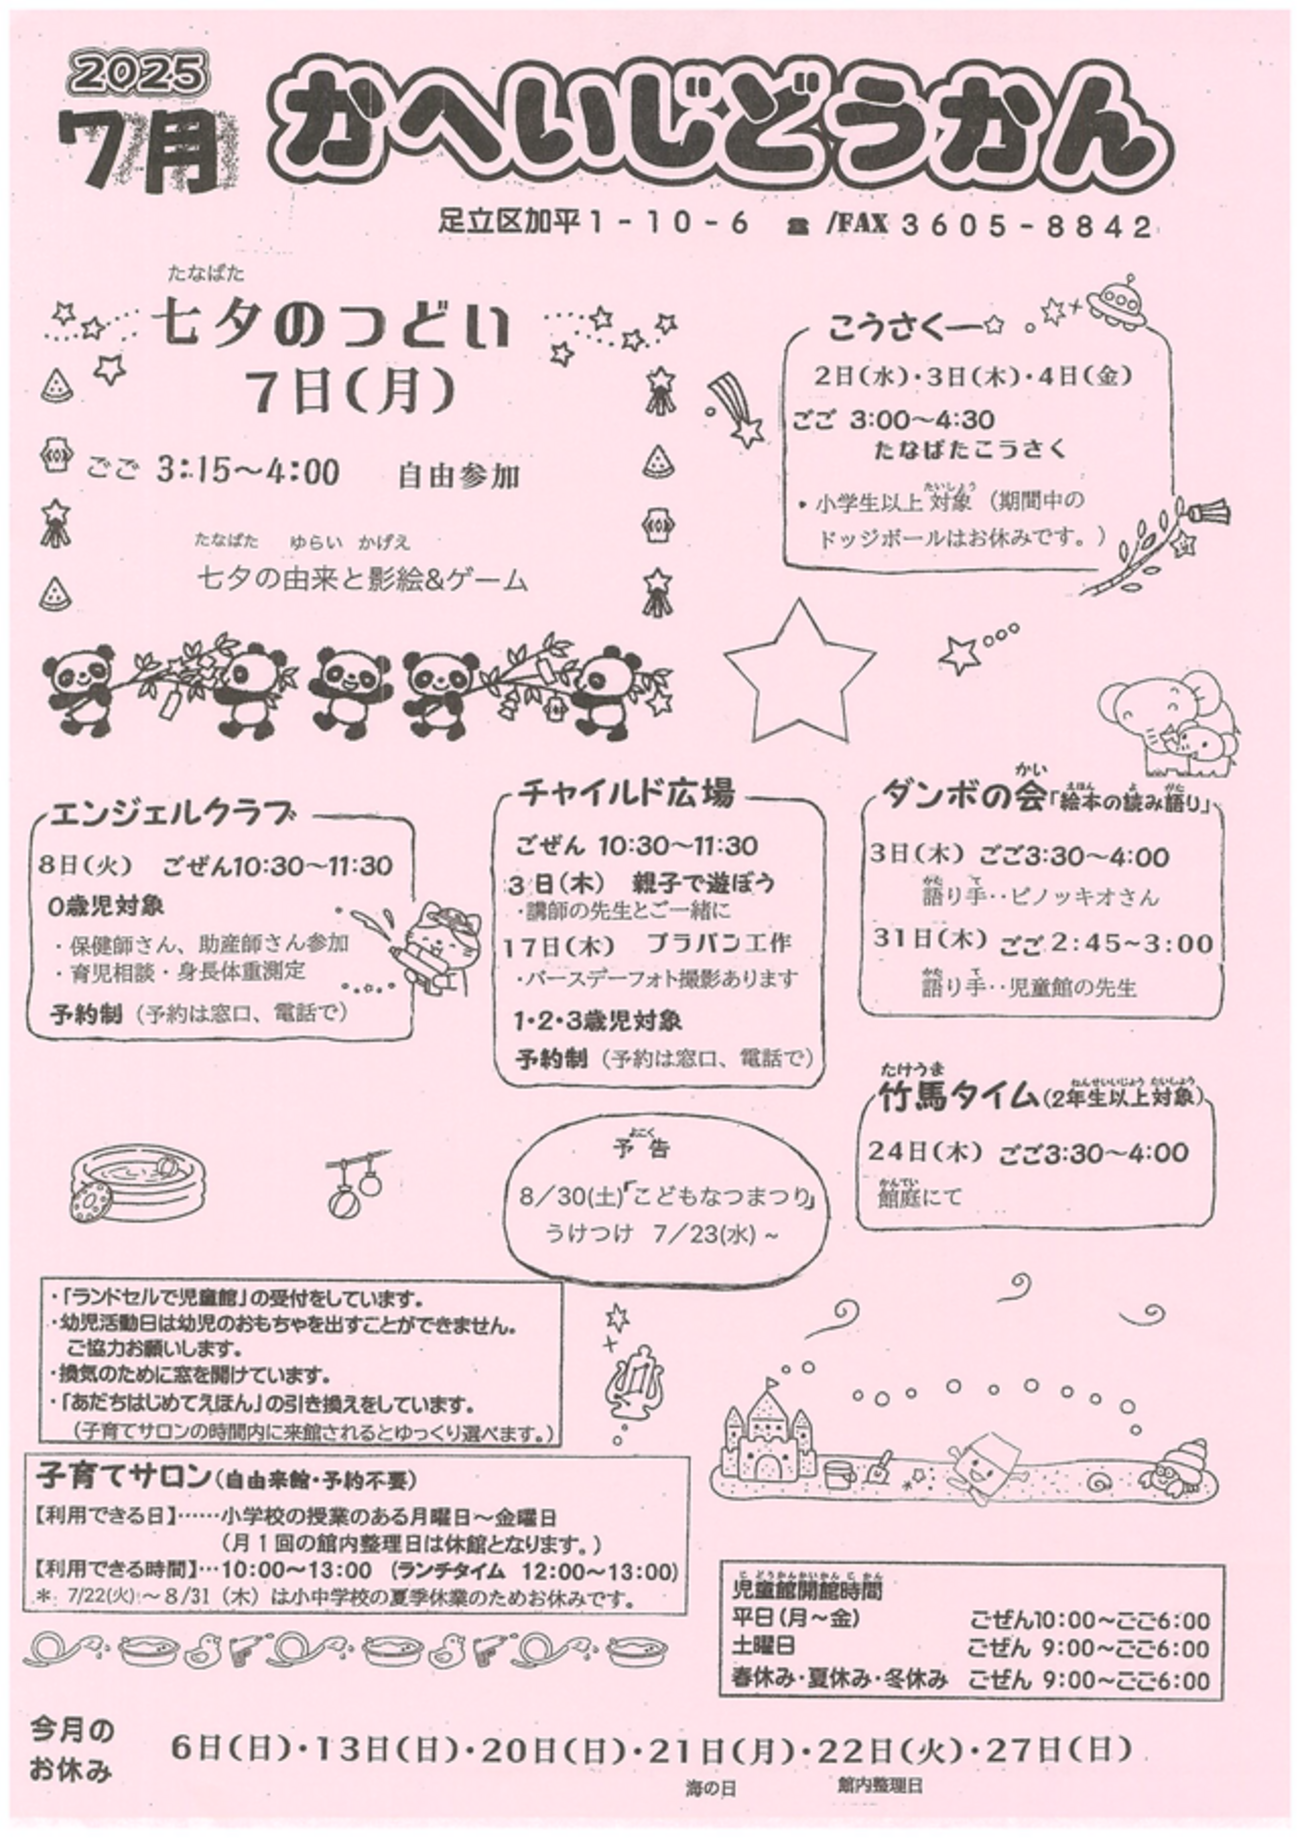 2025
7月
かへいじどうかん
足立区加平1-10-6 ☎/FAX 3605-8842
たなばた
七夕のつどい
7日(月)
ごご 3:15～4:00 自由参加
たなばた ゆらい かげえ
七夕の由来と影絵&ゲーム
こうさく
2日(水)・3日(木)・4日(金)
ごご 3:00～4:30
たなばたこうさく
たいしょう
・小学生以上対象（期間中の
ドッジボールはお休みです。）
エンジェルクラブ
8日(火) ごぜん10:30～11:30
0歳児対象
・保健師さん、助産師さん参加
・育児相談・身長体重測定
予約制（予約は窓口、電話で）
チャイルド広場
ごぜん 10:30～11:30
3日(木) 親子で遊ぼう
・講師の先生とご一緒に
17日(木) プラバン工作
・バースデーフォト撮影あります
1・2・3歳児対象
予約制（予約は窓口、電話で）
かい えほん よ がた
ダンボの会「絵本の読み語り」
3日(木) ごご3:30～4:00
かた て
語り手‥ピノッキオさん
31日(木) ごご 2:45~3:00
かた て
語り手‥児童館の先生
たけうま ねんせいいじょう たいしょう
竹馬タイム(2年生以上対象)
24日(木) ごご3:30～4:00
かんてい
館庭にて
よこく
予告
8／30(土)「こどもなつまつり」
うけつけ 7／23(水) ~
・「ランドセルで児童館」の受付をしています。
・幼児活動日は幼児のおもちゃを出すことができません。
ご協力お願いします。
・換気のために窓を開けています。
・「あだちはじめてえほん」の引き換えをしています。
（子育てサロンの時間内に来館されるとゆっくり選べます。）
子育てサロン(自由来館・予約不要)
【利用できる日】……小学校の授業のある月曜日～金曜日
（月1回の館内整理日は休館となります。）
【利用できる時間】…10:00～13:00 (ランチタイム 12:00～13:00)
＊ 7/22(火)～8/31（木）は小中学校の夏季休業のためお休みです。
じどうかんかいかんじかん
児童館開館時間
平日(月～金) ごぜん10:00～ごご6:00
土曜日 ごぜん 9:00～ごご6:00
春休み・夏休み・冬休み ごぜん 9:00～ごご6:00
今月の
お休み
6日(日)・13日(日)・20日(日)・21日(月)・22日(火)・27日(日)
海の日 館内整理日